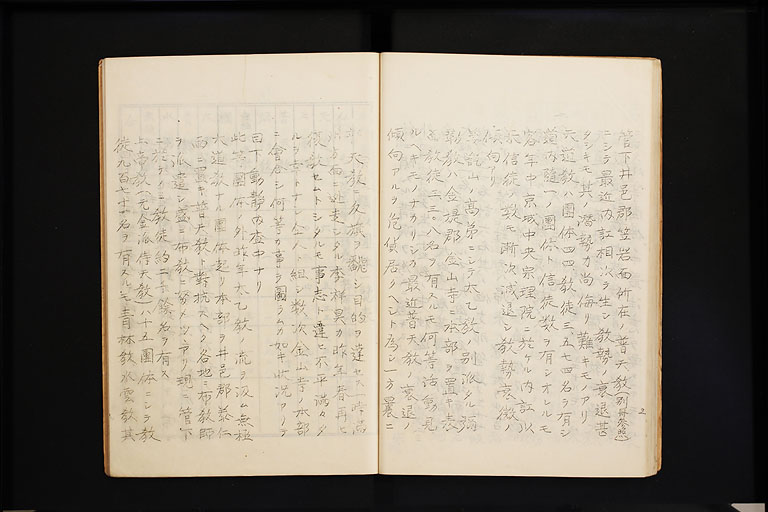 管下井邑郡笠岩面所在ノ普天教(別冊参照)
ニシテ最近内訌相次テ生シ教勢ノ衰退甚
タシキモ其ノ潜勢力尚侮リ難キモノアリ
天道教ハ團体四四教徒三五七四名ヲ有シ
道内随一ノ團体ト信徒数ヲ有シオレルモ
客年中京城中央宗理院ニ於ケル内訌以
来信徒ノ数モ漸次減退シ教勢衰微ノ
傾向アリ
ノ高弟ニシテ太乙教ノ別派タル彌
勒教ハ金堤郡金山寺ニ本部ヲ置キ表
教徒三三八名ヲ有スルモ何等活動見
ルヘキモノナカリシカ最近普天教衰退ノ
傾向アルヲ
天教ニ反旗ヲ飜シ目的ヲ達セス一時
方面ニ赴キタル李祥昊カ昨年春再ヒ
セムトシタルモ事志ト違ヒ不平満々タ
ルヲ
ニ會合シ何等カ事ヲ圖ラムカ如キ状況アルヲ
目下動静内査中ナリ
此等團体ノ外昨年太乙教ノ流ヲ汲ム無極
大道教ナル團体起リ本部ヲ井邑郡泰仁
面ニ置キ普天教ト對抗スヘク各地ニ布教師
ヲ派遣シ盛ニ布教ニ努メツヽアリ現ニ管下
ニ於ケル教徒約二千餘名ヲ有ス
上帝教(元金派侍天教)ハ十五團体ニシテ教
徒九百七十 名ヲ有スルモ青林教水雲教其